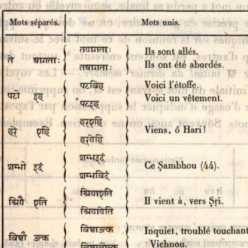 Mots séparés. Mots unis.
ते आगताः
Ils sont allés.
Ils ont été abordés.
पटो इह
पटविह
पटइह
Voici l'étoffe.
Voici un vêtement.
हरे एहि
हरएहि
हरयेहि
Viens, ô Hari!
शम्भो इदं
शम्भइदं
शम्भविदं
Ce Şambhou (44).
श्रियै एति
श्रियाएति
श्रियायेति
Il vient à, vers Şrî.
Inquiet, troublé touchant
Vichnou.